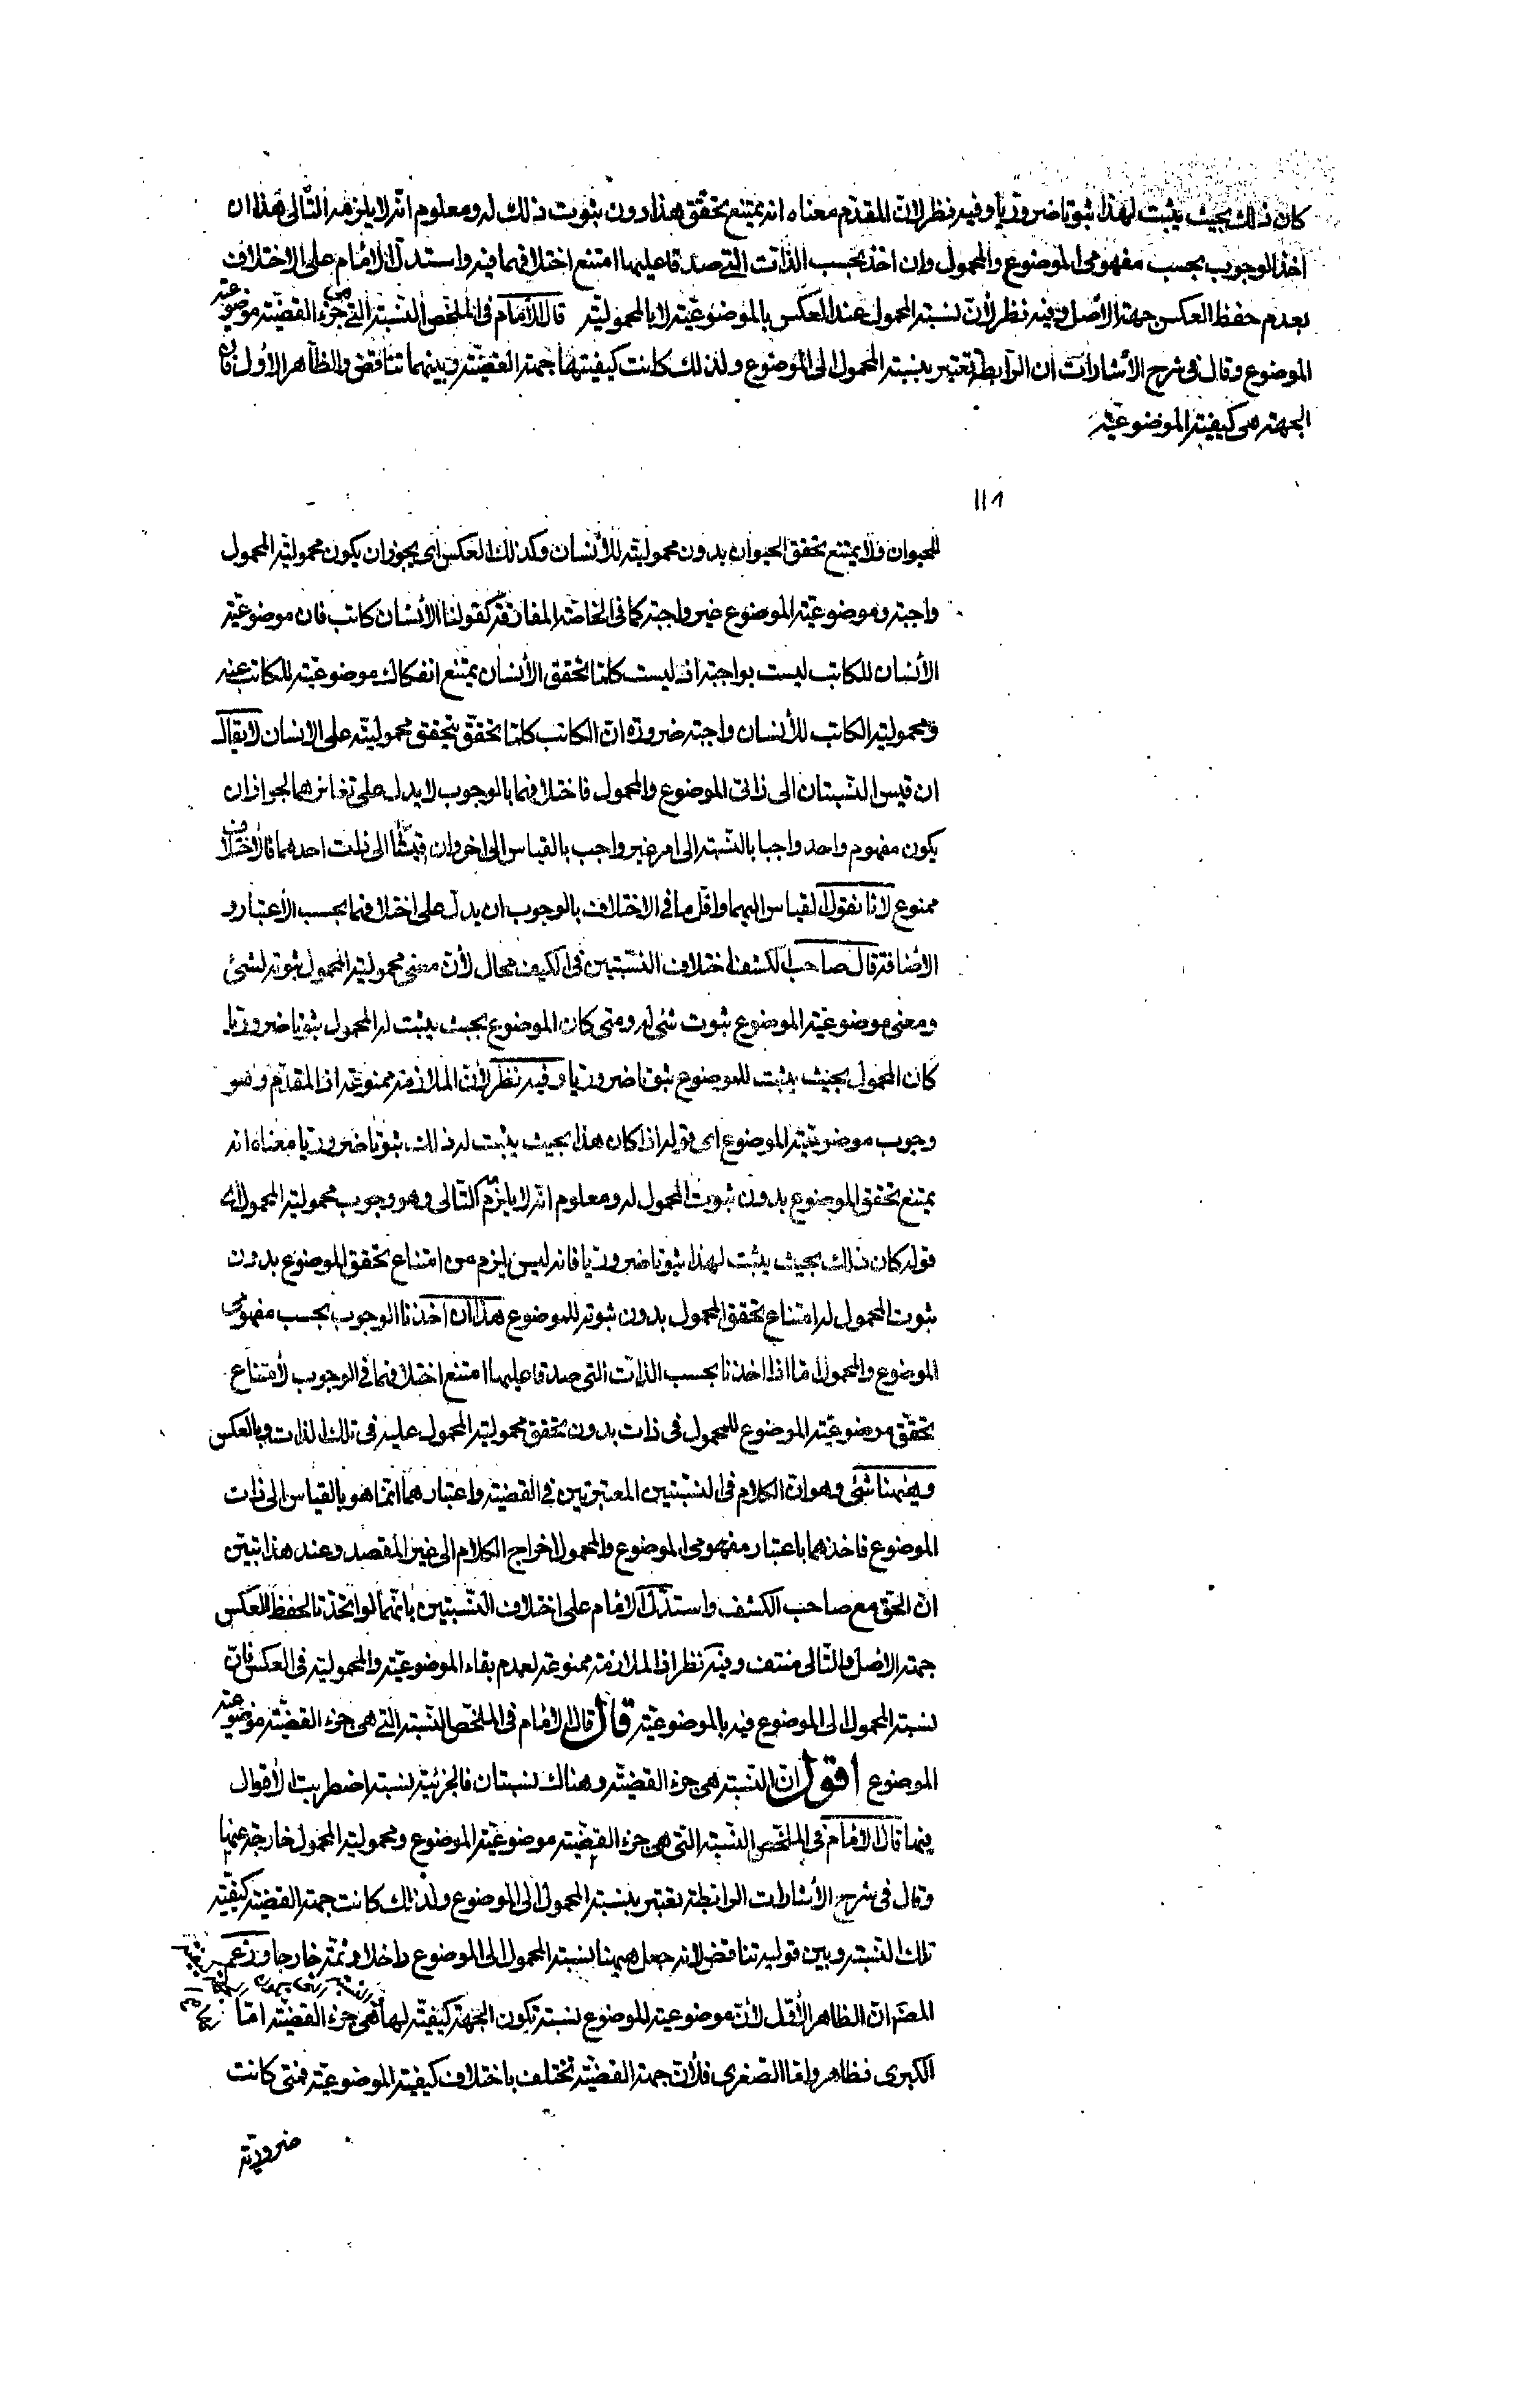 كان ذلك بحيث يثبت لهذا ثبوتا ضروريا وفيه نظر لان المقدم معناه انه يمتنع تحقق هذا دون ثبوت ذلك له ومعلوم انه لا يلزمه التالى هذا ان
اخذ الوجوب بحسب مفهومى الموضوع والمحمول وان اخذ بحسب الذات التى صدقا عليها امتنع اختلافهما فيه واستدل الامام على الاختلاف
بعدم حفظ العكس جهة الأصل وفيه نظر لأن نسبة المحمول عند العكس بالموضوعية لا بالمحمولية قال الأمام فى الملخص النسبة التى هى جزء القضية موضوعية
الموضوع وقال فى شرح الأشارات ان الرابطة تعتبر بنسبة المحمول الى الموضوع ولذلك كانت كيفيتها جهة القضية وبينهما تناقض والظاهر الأول فان
الجهة هى كيفية الموضوعية
١١٨
للحيوان ولا يمتنع تحقق الحيوان بدون محموليته للأنسان وكذلك العكس اى يجوز ان يكون محمولية المحمول
واجبة وموضوعية الموضوع غير واجبة كما فى الخاصة المفارقة كقولنا الأنسان كاتب فان موضوعية
الأنسان للكاتب ليست بواجبة اذ ليست كلما تحقق الأنسان يمتنع انفكاك موضوعيته للكاتب عنه
ومحمولية الكاتب للأنسان واجبة ضرورة ان الكاتب كلما تحقق يتحقق محموليته على الانسان لا يقال
ان قيس النسبتان الى ذاتى الموضوع والمحمول فاختلافهما بالوجوب لا يدل على تغايرهما لجواز ان
يكون مفهوم واحد واجبا بالنسبة الى امر غير واجب بالقياس الى اخر وان قيستا الى ذات احدهما فالاختلاف
ممنوع لانا نقول القياس اليهما واقل ما فى الاختلاف بالوجوب ان يدل على اختلافهما بحسب الأعتبار و
الأضافة قال صاحب الكشف اختلاف النسبتين فى الكيف محال لأن معنى محمولية المحمول ثبوته لشئ
ومعنى موضوعية الموضوع ثبوت شئ له ومتى كان الموضوع بحيث يثبت له المحمول ثبوتا ضروريا
كان المحمول بحيث يثبت للموضوع ثبوتا ضروريا وفيه نظر لأن الملازمة ممنوعة اذ المقدم وهو
وجوب موضوعية الموضوع اى قوله اذا كان هذا بحيث يثبت له ذلك ثبوتا ضروريا معناه انه
يمتنع تحقق الموضوع بدون ثبوت المحمول له ومعلوم انه لا يلزمه التالى وهو وجوب محمولية المحمول اى
قوله كان ذلك بحيث يثبت لهذا ثبوتا ضروريا فانه ليس يلزم من امتناع تحقق الموضوع بدون
ثبوت المحمول له امتناع تحقق المحمول بدون ثبوته للموضوع هذا ان اخذنا الوجوب بحسب مفهومى
الموضوع والمحمول اما اذا اخذنا بحسب الذات التى صدقا عليها امتنع اختلافهما فى الوجوب لأمتناع
تحقق موضوعية الموضوع للمحمول فى ذات بدون تحقق محمولية المحمول عليه فى تلك الذات وبالعكس
وههنا شئ وهو ان الكلام فى النسبتين المعتبرتين فى القضية واعتبارهما انما هو بالقياس الى ذات
الموضوع فاخذهما باعتبار مفهومى الموضوع والمحمول اخراج الكلام الى غير المقصد وعند هذا تبين
ان الحق مع صاحب الكشف واستدل الامام على اختلاف النسبتين بانهما لو اتحدتا لحفظ العكس
جهة الاصل والتالى منتف وفيه نظر اذ الملازمة ممنوعة لعدم بقاء الموضوعية والمحمولية فى العكس فان
نسبة المحمول الى الموضوع فيه بالموضوعية قال قال الامام فى الملخص النسبة التى هى جزء القضية موضوعية
الموضوع اقول ان النسبة هى جزء القضية وهناك نسبتان فالجزئية لنسبة اضطربت الأقوال
فيها قال الامام فى الملخص النسبة التى هى جزء القضية موضوعية الموضوع ومحمولية المحمول خارجة عنها
وقال فى شرح الأشارات الرابطة تعتبر بنسبة المحمول الى الموضوع ولذلك كانت جهة القضية كيفية
تلك النسبة وبين قوليه تناقض لانه جعل ههنا نسبة المحمول الى الموضوع داخلا وثمة خارجا وزعم
المصنف ان الظاهر الأول لأن موضوعية الموضوع نسبة تكون الجهة كيفية لها هى جزء القضية اما
الكبرى فظاهر واما الصغرى فلأن جهة القضية تختلف باختلاف كيفية الموضوعية فمتى كانت
ضرورية